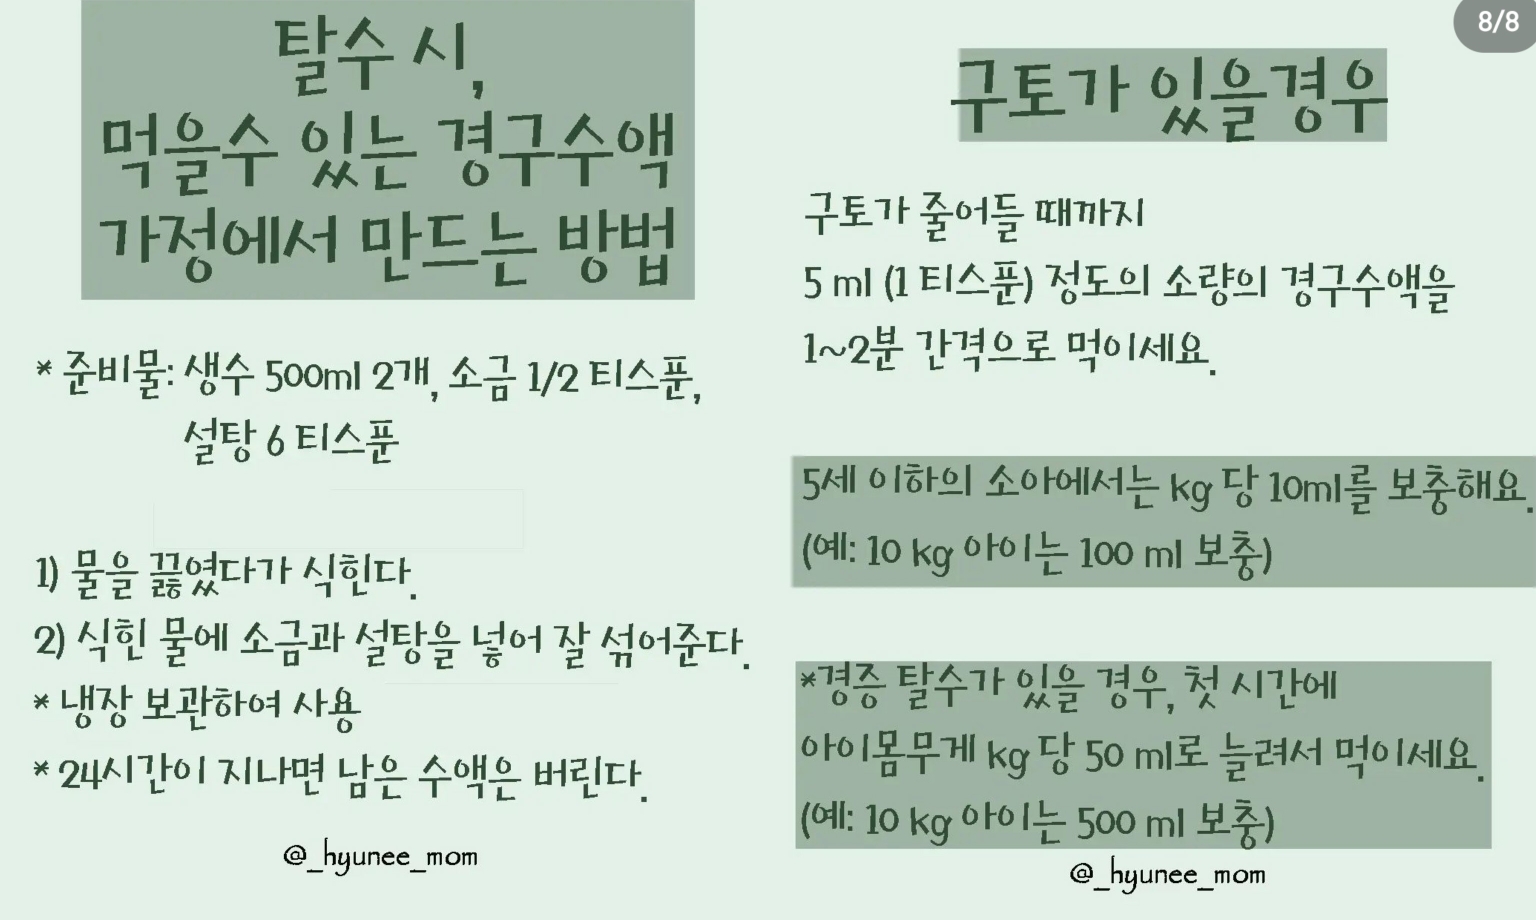 탈수 시,
먹을수 있는 경구수액
가정에서 만드는 방법
* 준비물: 생수 500ml 2개, 소금 1/2 티스푼,
설탕 6 티스푼
1) 물을 끓였다가 식힌다.
2) 식힌 물에 소금과 설탕을 넣어 잘 섞어준다.
* 냉장 보관하여 사용
* 24시간이 지나면 남은 수액은 버린다.
@_hyunee_mom
8/8
구토가 있을경우
구토가 줄어들 때까지
5 ml (1 티스푼) 정도의 소량의 경구수액을
1~2분 간격으로 먹이세요.
5세 이하의 소아에서는 kg 당 10ml를 보충해요.
(예: 10 kg 아이는 100 ml 보충)
*경증 탈수가 있을 경우, 첫 시간에
아이몸무게 kg 당 50 ml로 늘려서 먹이세요.
(예: 10 kg 아이는 500 ml 보충)
@_hyunee_mom